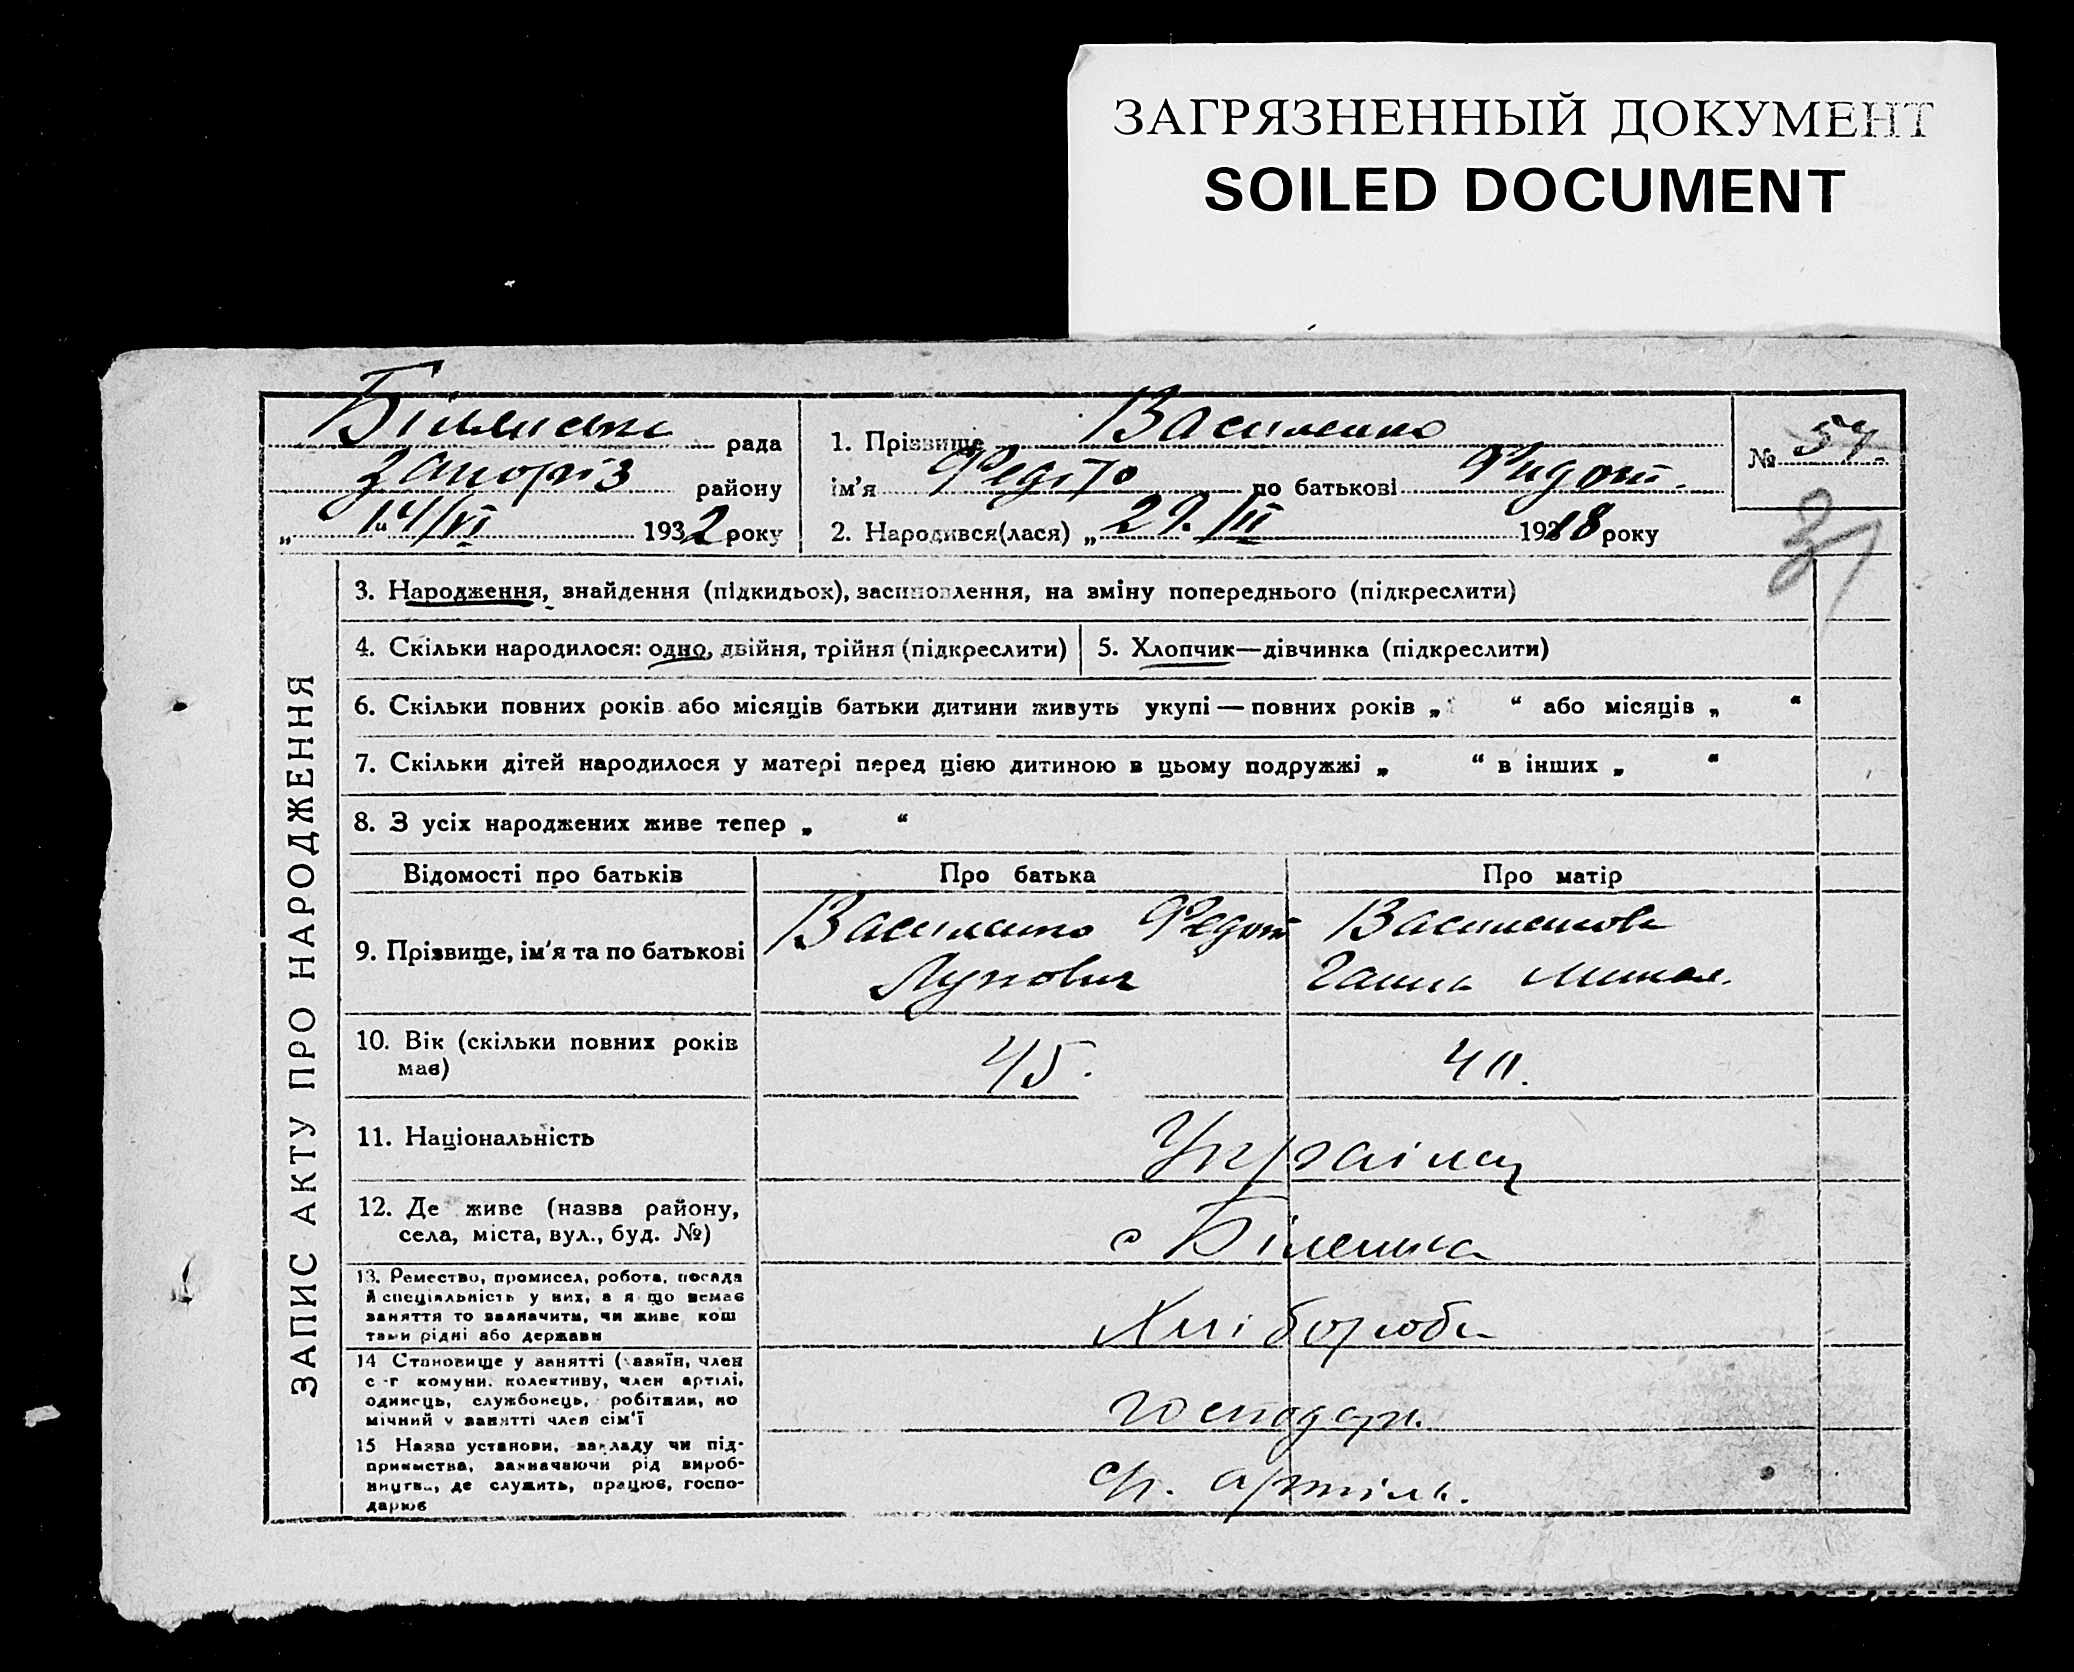 ЗАГРЯЗНЕННЫЙ ДОКУМЕНТ
SOILED DOCUMENT
рада
Запоріз району
„14/VI 1932 року
1. Прізвище Василенко
ім’я по батькові Федот.
2. Народився(лася) „29. III 1918 року
№ 57.
37
ЗАПИС АКТУ ПРО НАРОДЖЕННЯ
3. Народження, знайдення (підкидьок), засиновлення, на зміну попереднього (підкреслити)
4. Скільки народилося: одно, двійня, трійня (підкреслити)
5. Хлопчик—дівчинка (підкреслити)
6. Скільки повних років або місяців батьки дитини живуть укупі — повних років „ “ або місяців „ “
7. Скільки дітей народилося у матері перед цією дитиною в цьому подружжі „ “ в інших „ “
8. З усіх народжених живе тепер „ “
Відомості про батьків
Про батька
Про матір
9. Прізвище, ім’я та по батькові
Василенко Федот
Лупович
Василенкова
Ганна
10. Вік (скільки повних років
має)
45.
40.
11. Національність
Українц
12. Де живе (назва району,
села, міста, вул., буд. №)
с Біленька
13. Ремество, промисел, робота, посада
й спеціяльність у них, а я що немає
заняття то зазначити, чи живе кош
тами рідні або держави
Хлібороби
14 Становище у занятті (хазяїн, член
с-г комуни, колективу, член артілі,
одинець, службовець, робітник, по
мічний у занятті член сім’ї
господар.
15 Назва установи, закладу чи під-
приємства, зазначаючи рід вироб-
ництва, де служить, працює, госпо-
дарює
артіль.